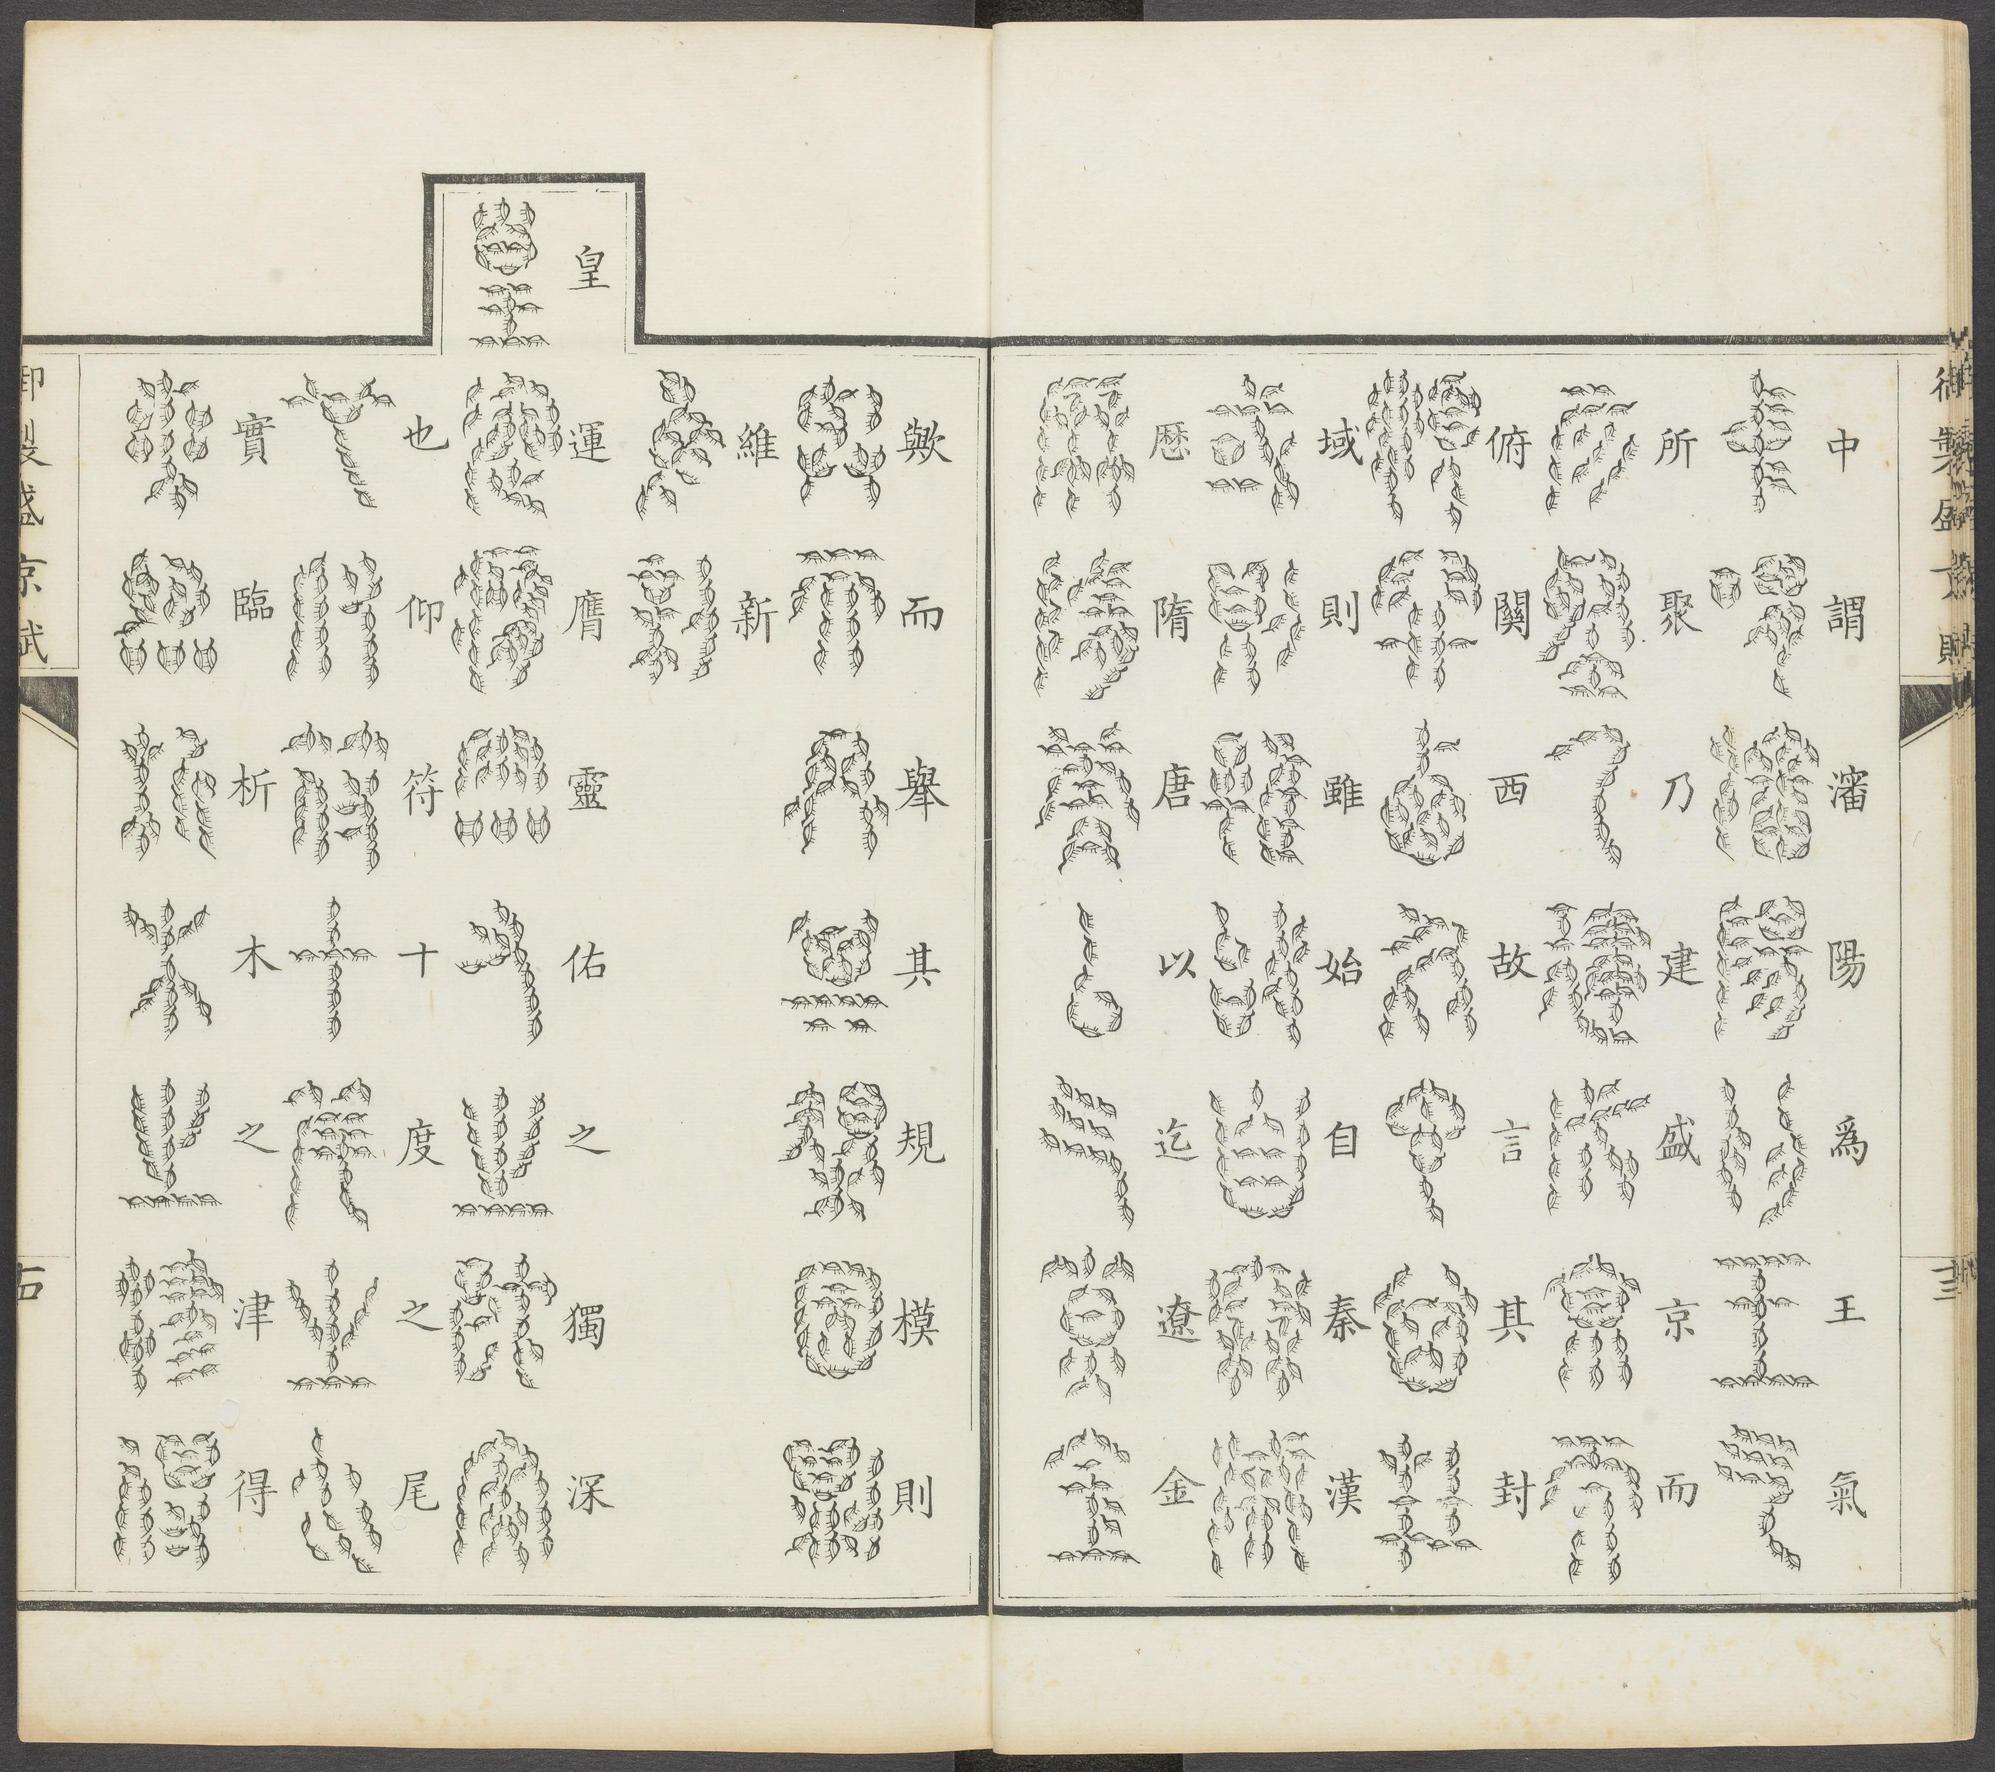 御製盛京賦
中謂瀋陽爲王氣
所聚乃建盛京而
俯關西故言其封
域則雖始自秦漢
歷隋唐以迄遼金
歟而舉其規模則
維新
皇
運膺靈佑之獨深
也仰符十度之尾
實臨析木之津得
御製盛京賦